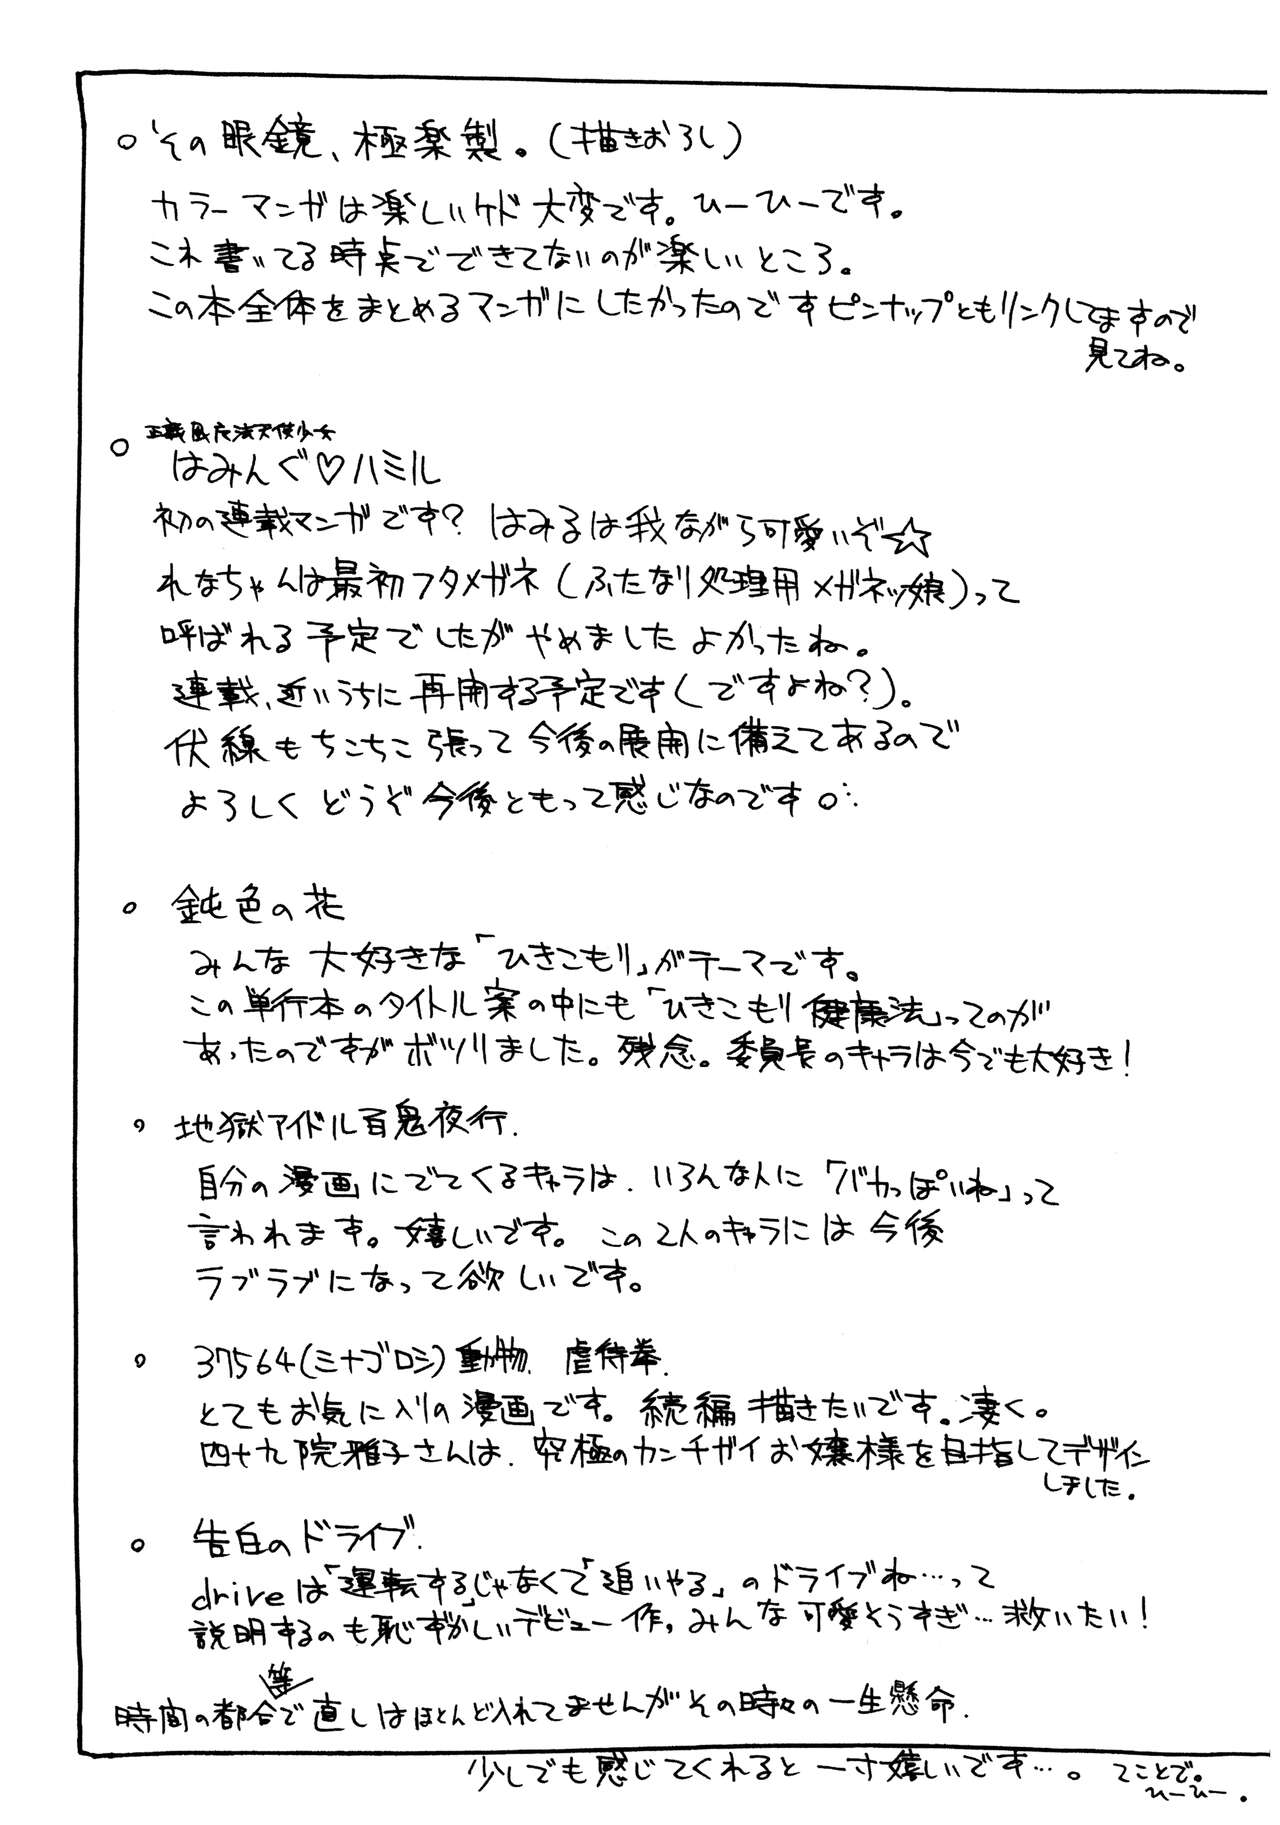 ○ その眼鏡、極楽製。(描きおろし)
カラーマンガは楽しいケド大変です。ひーひーです。
これ書いてる時点でできてないのが楽しいところ。
この本全体をまとめるマンガにしたかったのですピンナップともリンクしてますので
見てね。
○ 天使少女
はみんぐ♡ハミル
初の連載マンガです? はみるは我ながら可愛いぞ☆
れなちゃんは最初フタメガネ(ふたなり処理用メガネッ娘)って
呼ばれる予定でしたがやめましたよかったね。
連載、近いうちに再開する予定です(ですよね?)。
伏線もちこちこ張って今後の展開に備えてあるので
よろしくどうぞ今後ともって感じなのです
○ 鈍色の花
みんな大好きな「ひきこもり」がテーマです。
この単行本のタイトル案の中にも「ひきこもり健康法」ってのが
あったのですがボツりました。残念。委員長のキャラは今でも大好き!
○ 地獄アイドル百鬼夜行.
自分の漫画にでてくるキャラは、いろんな人に「バカっぽいね」って
言われます。嬉しいです。この2人のキャラには今後
ラブラブになって欲しいです。
○ 37564(ミナゴロシ)動物虐待拳.
とてもお気に入りの漫画です。続編描きたいです。凄く。
四十九院雅子さんは、究極のカンチガイお嬢様を目指してデザイン
しました.
○ 告白のドライブ.
driveは「運転する」じゃなくて「追いやる」のドライブね…って
説明するのも恥ずかしいデビュー作。みんな可愛そうすぎ…救いたい!
等
時間の都合で直しはほとんど入れてませんがその時々の一生懸命.
少しでも感じてくれると一寸嬉しいです…。てことで。
ひーひー.